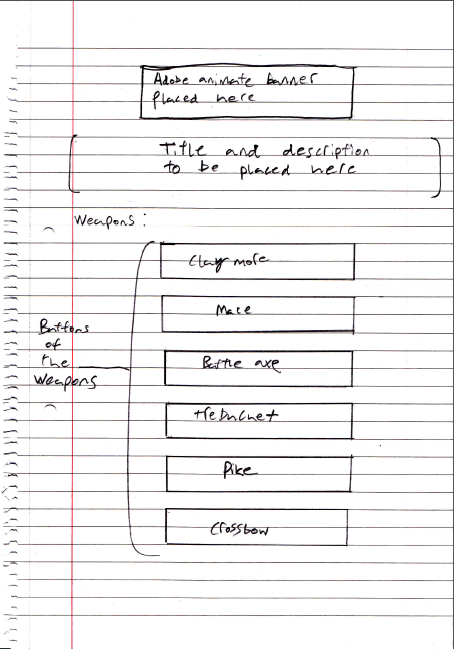 Adobe animate banner
placed here
Title and description
to be placed here
Weapons:
Claymore
Mace
Buttons
of
the
weapons
Battle axe
trebuchet
Pike
Crossbow